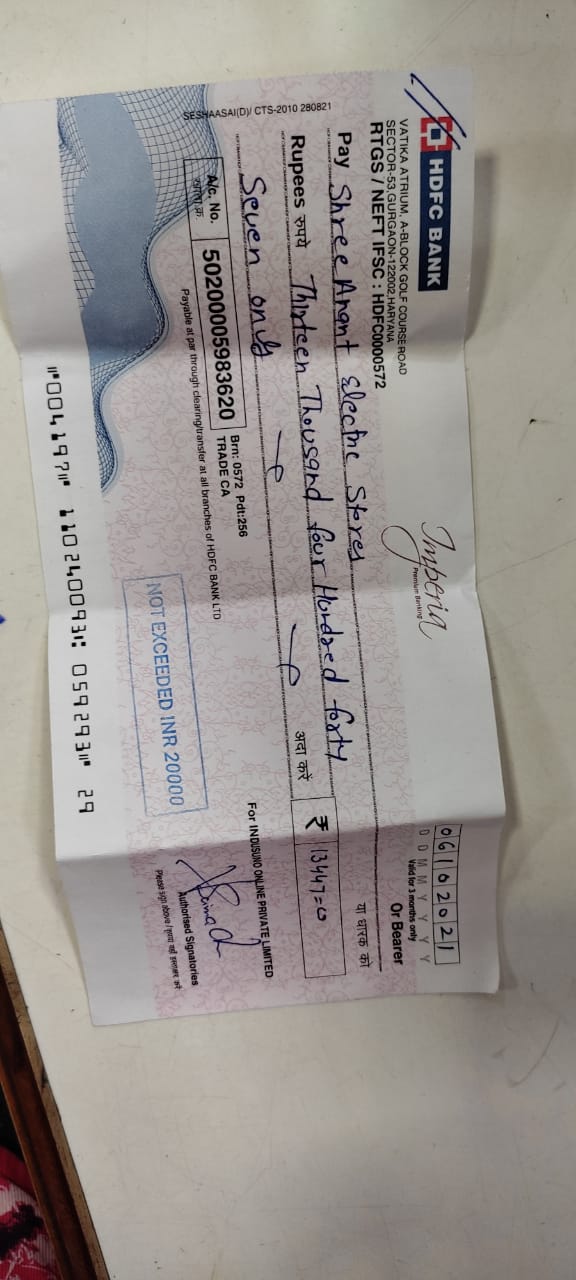 HDFC BANK
VATIKA ATRIUM, A-BLOCK GOLF COURSE ROAD
SECTOR-53, GURGAON-122002, HARYANA
RTGS / NEFT IFSC : HDFC0000572
Imperia
Premium Banking
06102021
D D M M Y Y Y Y
Valid for 3 months only
Pay Shree Anant Electric Stores
Or Bearer
या धारक को
Rupees रुपये Thirteen Thousand four Hundred forty
Seven only
अदा करें
₹ 13447=0
A/c. No.
50200005983620
Brn: 0572 Pdt:256
TRADE CA
Payable at par through clearing/transfer at all branches of HDFC BANK LTD
For INDUSUNO ONLINE PRIVATE LIMITED
NOT EXCEEDED INR 20000
Authorised Signatories
Please sign above /
SESHAASAI(D)/ CTS-2010 280821
⑈004197⑈ 110240093⑆ 059293⑈ 29